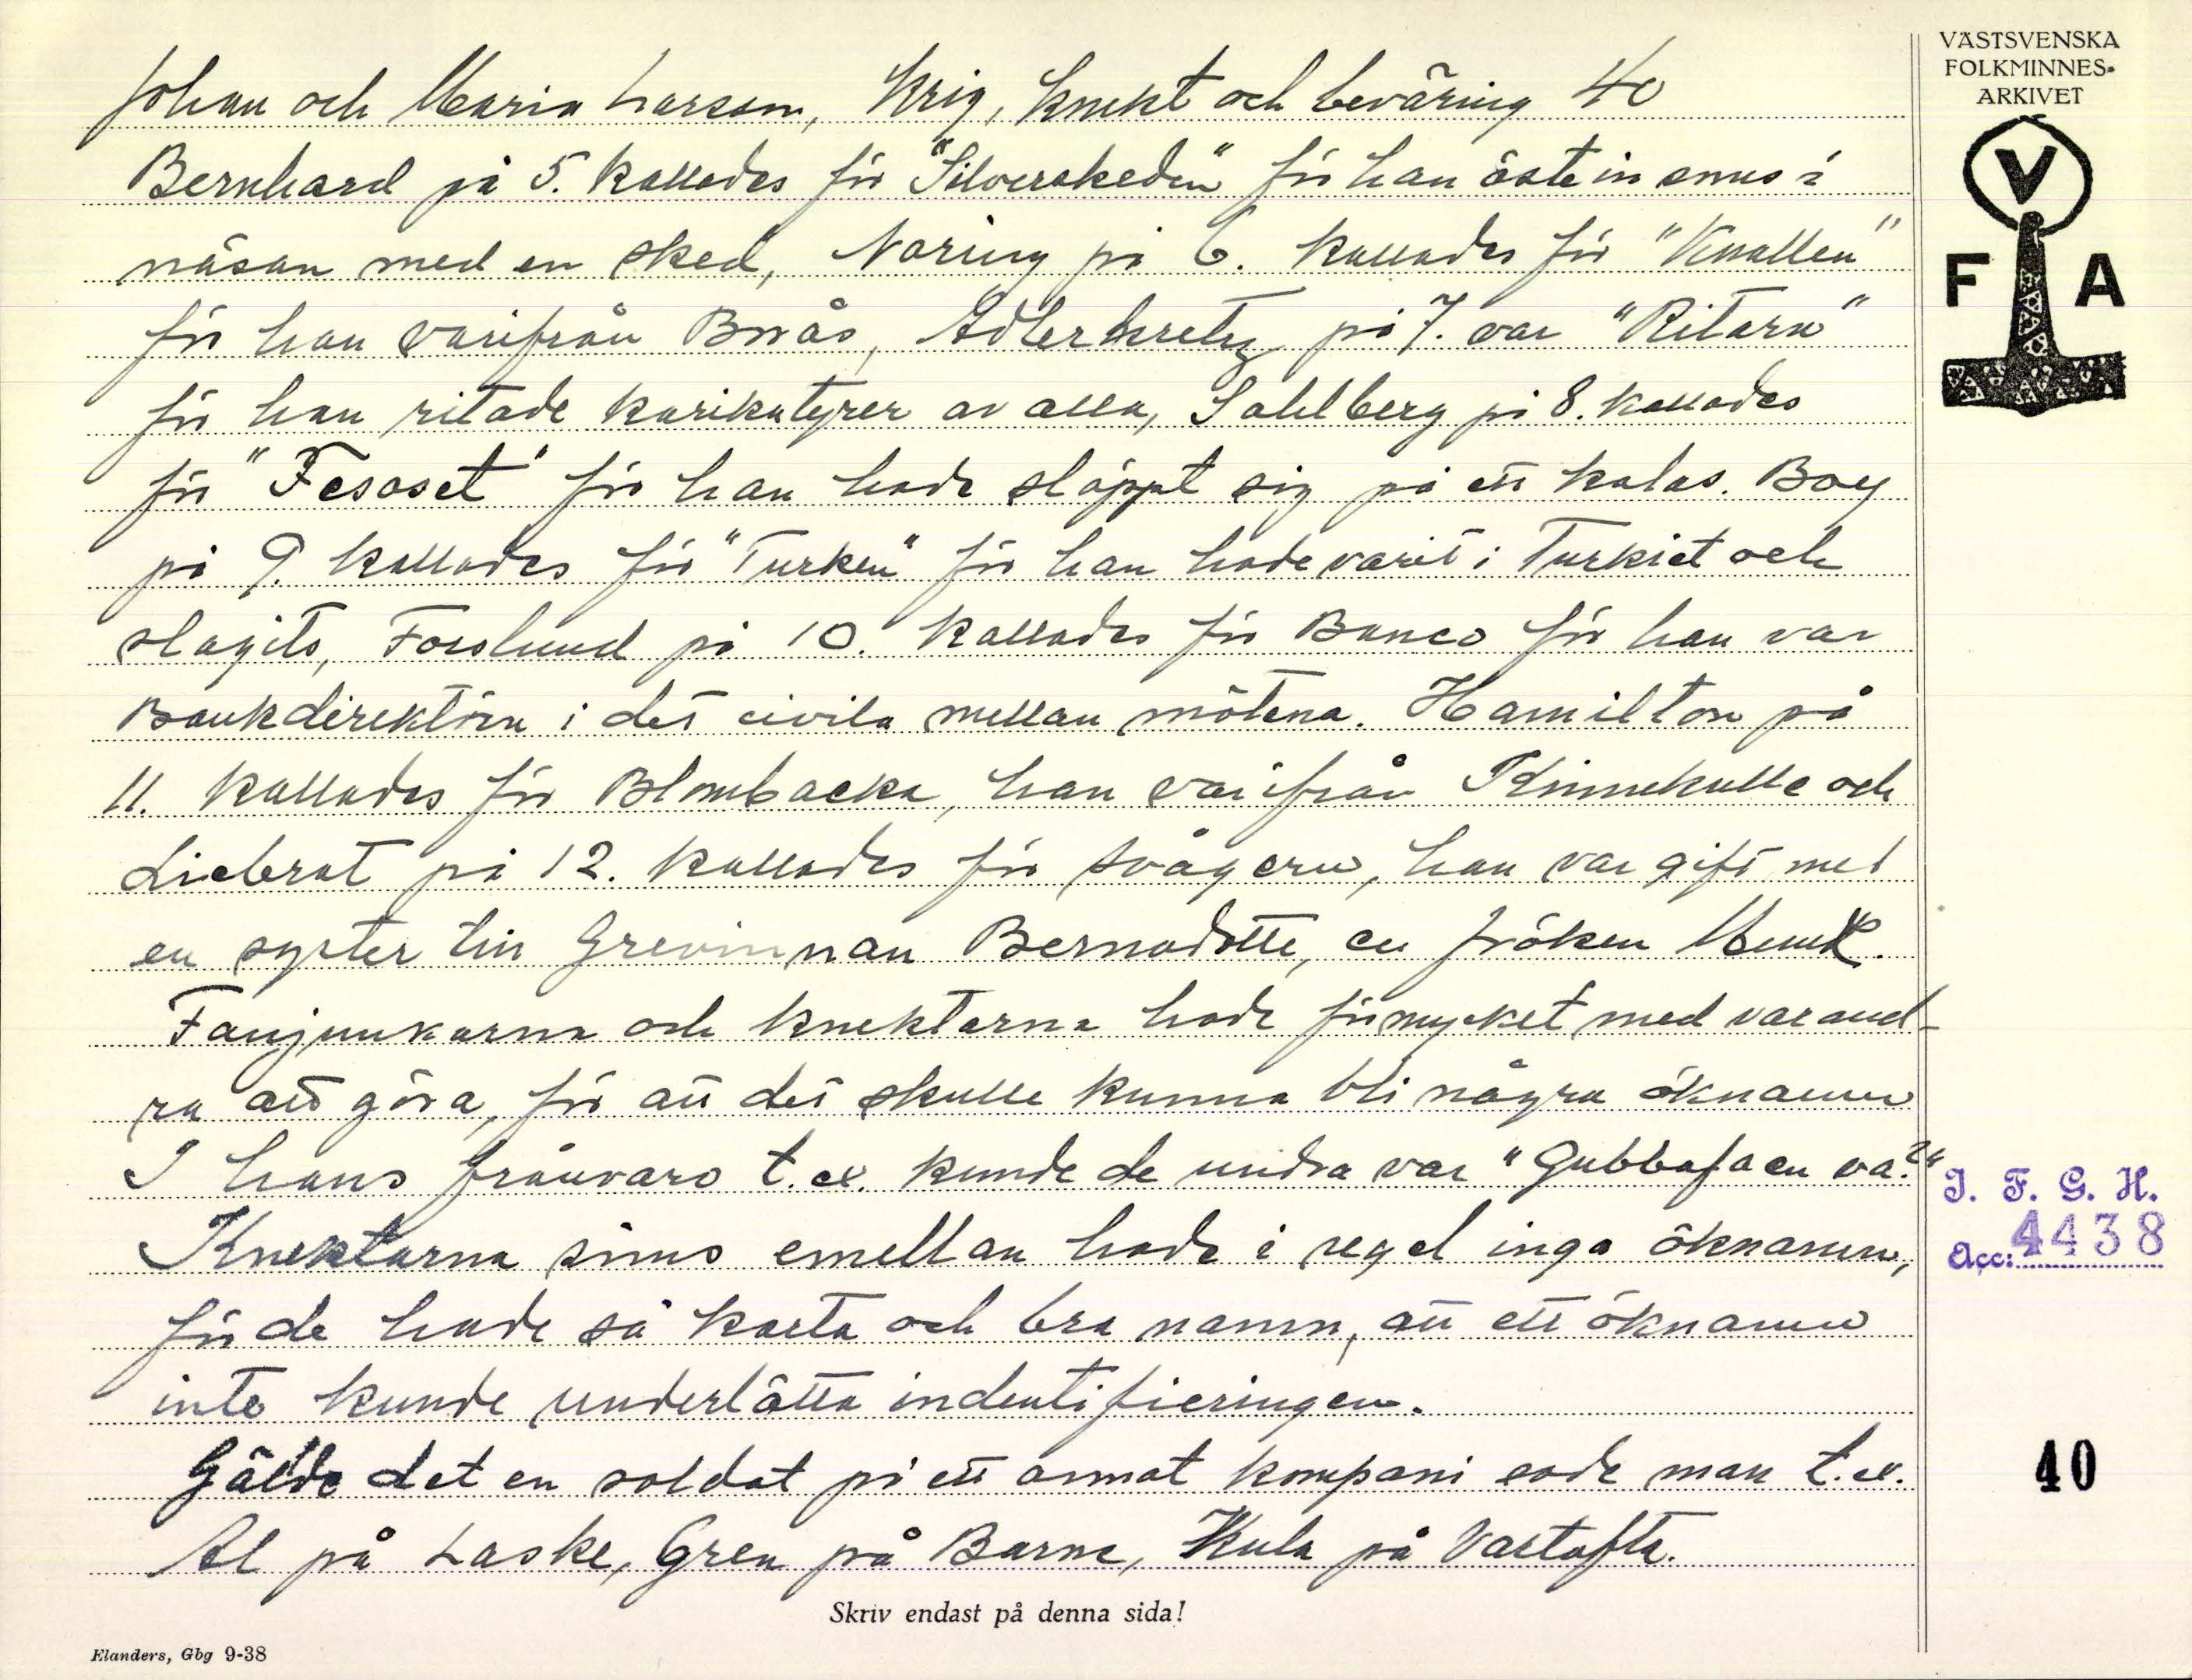 Johan och Maria Larson, Krig, knekt och beväring 40
Bernhard på 5. kallades för "Silverskeden" för han öste in snus i
näsan med en sked, Noring på 6. kallades för "Knallen"
för han var ifrån Borås, Adlerkretz på 7. var "Ritarn"
för han ritade karikatyrer av alla, Sahlberg på 8. kallades
för "Fesaset" för han hade släppt sig på ett kalas. Boy
på 9. kallades för "Turken" för han hade varit i Turkiet och
slagits, Forslund på 10. kallades för Banco för han var
Bankdirektörn i det civila mellan mötena. Hamilton på
11. kallades för Blombacka, han var ifrån Kinnekulle och
Liebrat på 12. kallades för svågern, han var gift med
en syster till Grevinnan Bernadotte, en fröken Munk.
Fanjunkarna och knektarna hade för mycket med varand-
ra att göra, för att det skulle kunna bli några öknamn
I hans frånvaro t.ex. kunde de undra var "Gubbafaen va?"
Knektarna sins emellan hade i regel inga öknamn,
för de hade så korta och bra namn, att ett öknamn
inte kunde underlätta indentifieringen.
Gällde det en soldat på ett annat kompani sade man t.ex.
Al på Laske, Gren på Barne, Kula på Vartofta.
Skriv endast på denna sida!
Elanders, Gbg 9-38
VÄSTSVENSKA
FOLKMINNES-
ARKIVET
V
F A
I. F. G. H.
Acc: 4438
40